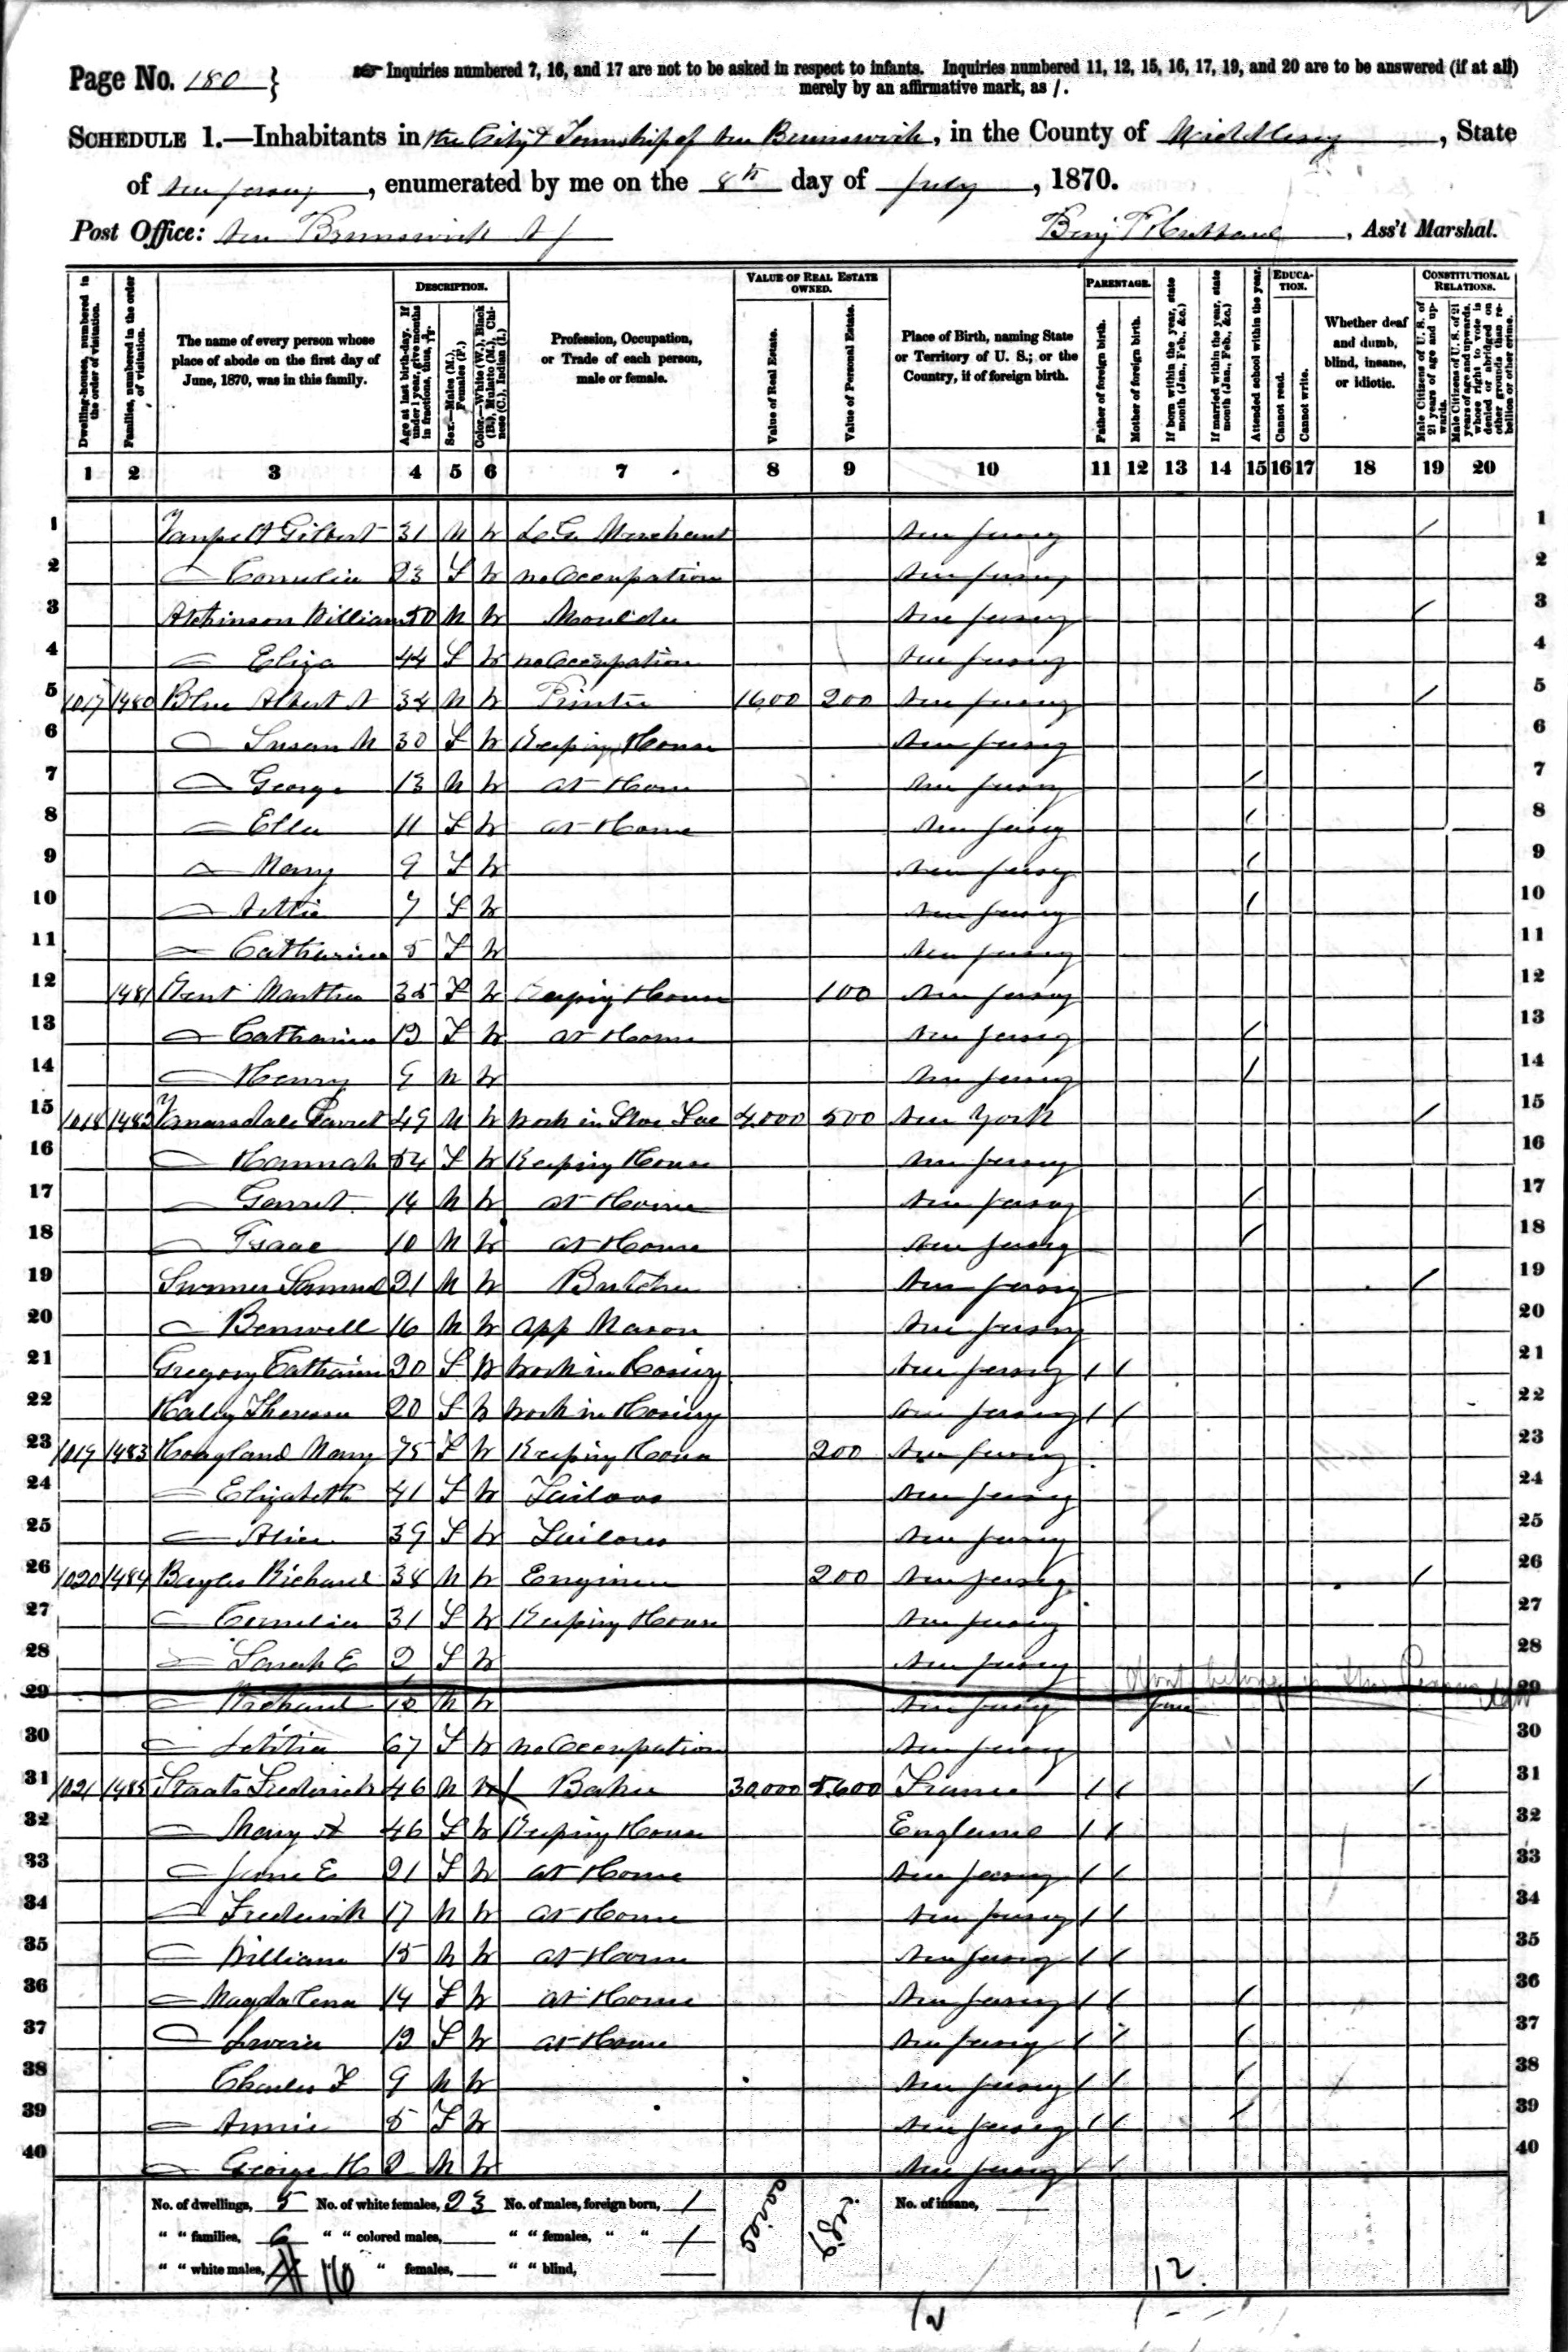 Page No. 180 }
Inquiries numbered 7, 16, and 17 are not to be asked in respect to infants. Inquiries numbered 11, 12, 15, 16, 17, 19, and 20 are to be answered (if at all) merely by an affirmative mark, as /.
SCHEDULE 1.—Inhabitants in the City & Township of New Brunswick, in the County of Middlesex, State
of New Jersey, enumerated by me on the 8th day of July, 1870.
Post Office: New Brunswick N J
Benj F, Ass't Marshal.
Dwelling-houses, numbered in the order of visitation.
Families, numbered in the order of visitation.
The name of every person whose place of abode on the first day of June, 1870, was in this family.
DESCRIPTION.
Age at last birth-day. If under 1 year, give months in fractions, thus,
Sex.—Males (M.), Females (F.)
Color.—White (W.), Black (B.), Mulatto (M.), Chinese (C.), Indian (I.)
Profession, Occupation, or Trade of each person, male or female.
VALUE OF REAL ESTATE OWNED.
Value of Real Estate.
Value of Personal Estate.
Place of Birth, naming State or Territory of U. S.; or the Country, if of foreign birth.
PARENTAGE.
Father of foreign birth.
Mother of foreign birth.
If born within the year, state month (Jan., Feb., &c.)
If married within the year, state month (Jan., Feb., &c.)
Attended school within the year.
EDUCATION.
Cannot read.
Cannot write.
Whether deaf and dumb, blind, insane, or idiotic.
CONSTITUTIONAL RELATIONS.
Male Citizens of U. S. of 21 years of age and upwards.
Male Citizens of U. S. of 21 years of age and upwards, whose right to vote is denied or abridged on other grounds than rebellion or other crime.
1 2 3 4 5 6 7 8 9 10 11 12 13 14 15 16 17 18 19 20
1 Vanpelt Gilbert 31 M W Merchant New Jersey / 1
2 — Cornelia 23 F W no Occupation New Jersey 2
3 Atchinson William 50 M W Moulder New Jersey / 3
4 — Eliza 44 F W no Occupation New Jersey 4
5 1017 1480 Blue Albert 34 M W Printer 1600 200 New Jersey / 5
6 — Susan M 30 F W Keeping House New Jersey 6
7 — George 13 M W at Home New Jersey / 7
8 — Ella 11 F W at Home New Jersey / 8
9 — Mary 9 F W New Jersey / 9
10 — 7 F W New Jersey / 10
11 — Catharine 5 F W New Jersey 11
12 1481 Martha 35 F W Keeping House 100 New Jersey 12
13 — Catharine 12 F W at Home New Jersey / 13
14 — Henry 9 M W New Jersey / 14
15 1018 1482 Vanarsdale Garret 49 M W Work in Shoe Fac 4,000 500 New York / 15
16 — Hannah 54 F W Keeping House New Jersey 16
17 — Garret 14 M W at Home New Jersey / 17
18 — Isaac 10 M W at Home New Jersey / 18
19 Samuel 21 M W Butcher New Jersey / 19
20 — Benwell 16 M W app Mason New Jersey 20
21 Gregory Catharine 20 F W Work in Hosiery New Jersey / / 21
22 Haley Theresa 20 F W Work in Hosiery New Jersey / / 22
23 1019 1483 Hoagland Mary 75 F W Keeping House 200 New Jersey 23
24 — Elizabeth 41 F W Tailoress New Jersey 24
25 — Alice 39 F W Tailoress New Jersey 25
26 1020 1484 Bayles Richard 38 M W Engineer 200 New Jersey / 26
27 — Cornelia 31 F W Keeping House New Jersey 27
28 — Sarah E 2 F W New Jersey 28
29 — Richard M W New Jersey June 29
30 — Letitia 67 F W no Occupation New Jersey 30
31 1021 1485 Staats Frederick 46 M W Baker 30,000 5,600 France / / / 31
32 — Mary A 46 F W Keeping House England / / 32
33 — Jane E 21 F W at Home New Jersey / / 33
34 — Frederick 17 M W at Home New Jersey / / 34
35 — William 15 M W at Home New Jersey / / 35
36 — Magdalena 14 F W at Home New Jersey / / / 36
37 — Lavinia 12 F W at Home New Jersey / / / 37
38 Charles F 9 M W New Jersey / / / 38
39 — Annie 5 F W New Jersey / / / 39
40 — George H 2 M W New Jersey / / 40
No. of dwellings, 5 No. of white females, 23 No. of males, foreign born, 1 No. of insane,
" " families, 6 " " colored males, " " females, " " 1
" " white males, 16 " " females, " " blind,
12.